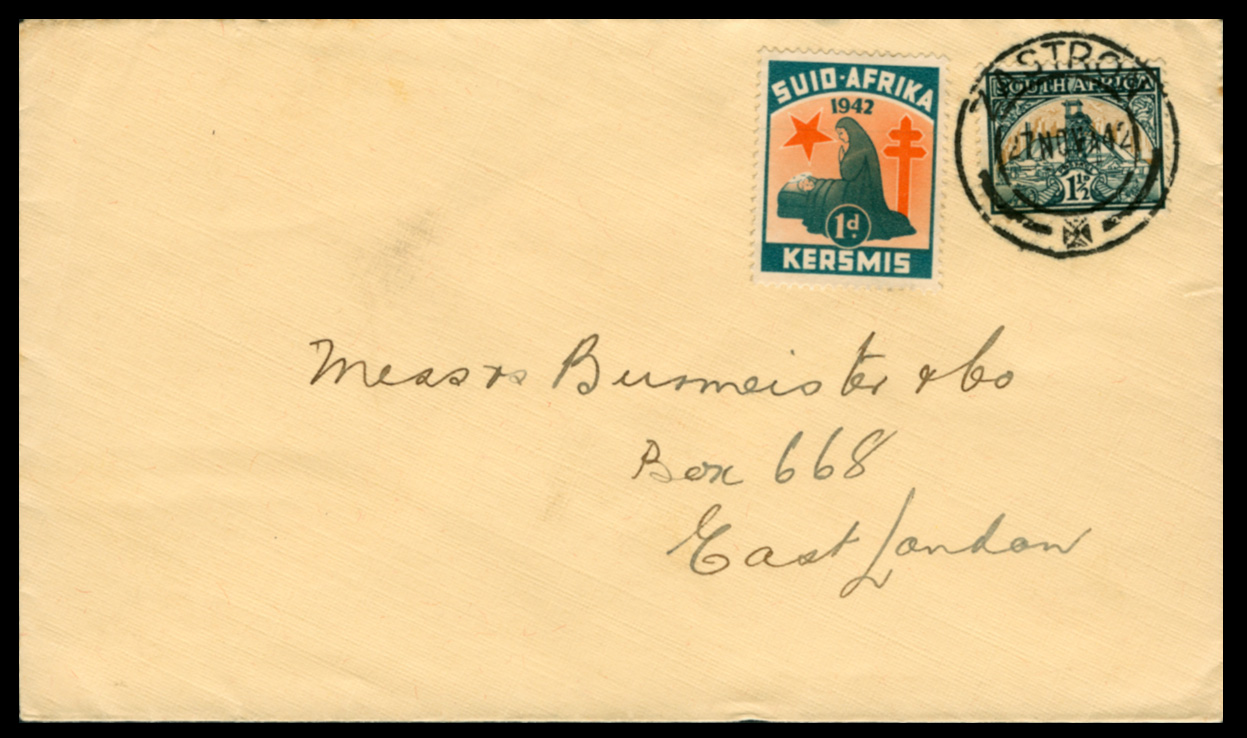 SUID-AFRIKA
1942
1d.
KERSMIS
ZASTRON
SOUTH AFRICA
27 NOV 42
1½D
Messrs Burmeister & Co
Box 668
East London